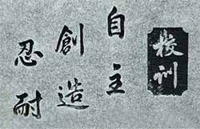 校訓
自主
創造
忍耐